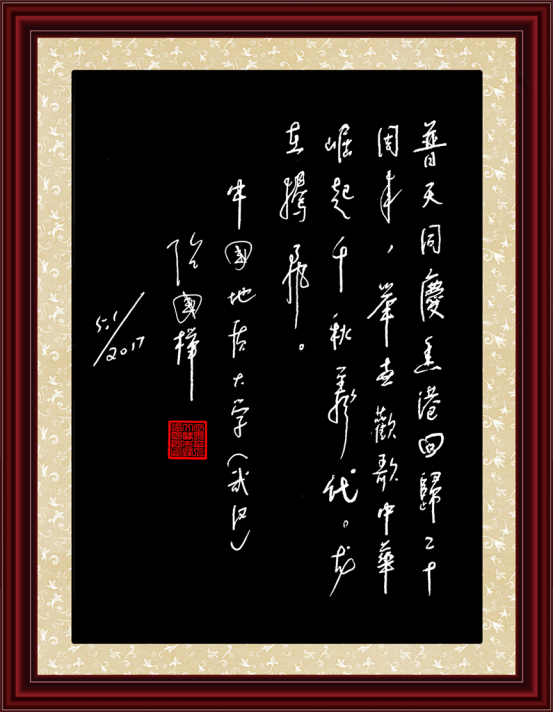 普天同慶香港回歸二十
周年，举世歡歌中華
崛起千秋萬代。龙
在騰飛。
中國地质大学（武汉）
國樺
5.1/2017